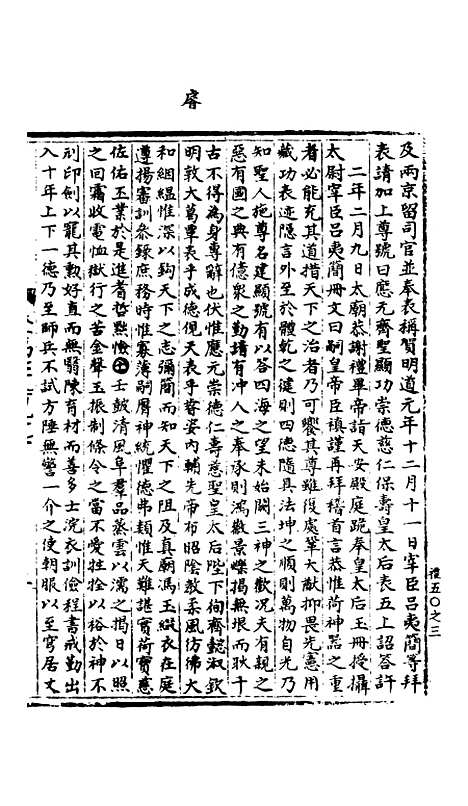 及兩京留司官並奉表稱賀明道元年十二月十一日宰臣呂夷簡等拜
表請加上尊號曰應元齊聖顯功崇德慈仁保壽皇太后表五上詔答許
二年二月九日太廟恭謝禮畢帝詣天安殿庭跪奉皇太后玉冊授攝
太尉宰臣呂夷簡冊文曰嗣皇帝臣禎謹再拜稽首言恭惟荷神器之重
者必能充其道措天下之治者乃可饗其尊雖復處鞏大猷抑畏先憲用
藏功表迹隱言外至於體乾之健則四德隨具法坤之順則萬物自光乃
知聖人拖尊名建顯號有以答四海之望未始闕三神之歡況夫有親之
惡有國之典有億衆之勤請有沖人之奉承則鴻徽景爍揭無垠而耿千
古不得為身專辭也伏惟應元崇德仁壽慈聖皇太后陛下徇齊懿淑欽
明敦大葛蕈表乎成德俔天表乎尊姿內輔先帝布昭陰教柔風彷彿大
和絪縕惟深以鈎天下之志彌簡而知天下之阻及真廟馮玉緞衣在庭
遵揚審訓叅錄庶務時惟寡薄嗣膺神統懼德弗類惟天難諶實荷寶慈
佐佑丕業於是進耆哲黜憸士鼓清風阜羣品蒸雲以濡之揭日以照
之回霜收電恤獄行之苦金聲玉振制條令之當不愛牲拴以裕於神不
刓印劍以罷其勲好直而無翳陳育材而善多士浣衣訓儉程書戒勤出
入十年上下一德乃至師兵不試方陲無警一介之使朝服以至穹居丈
睿
禮五〇之三